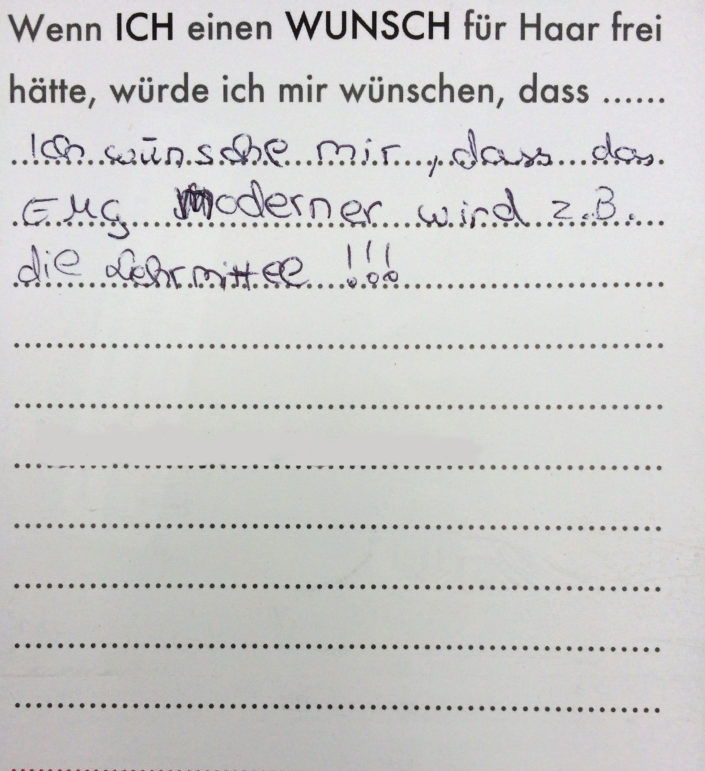 Wenn ICH einen WUNSCH für Haar frei
hätte, würde ich mir wünschen, dass ......
Ich wünsche mir, dass das
EMG Moderner wird z.B.
die Lehrmittel !!!